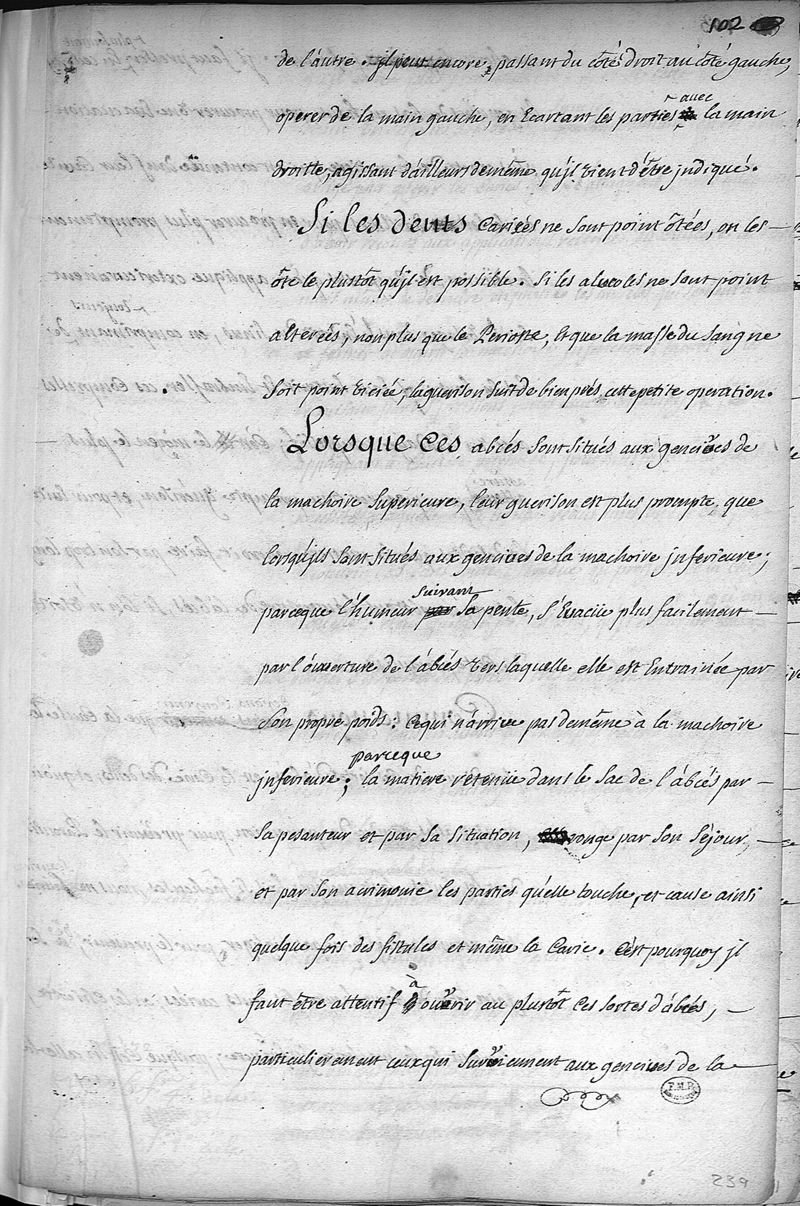 102
de l'autre. jl peut encore, passant du côté droit au côté gauche,
operer de la main gauche, en Ecartant les parties avec la main
droitte, agissant d'ailleurs de même qu'jl vient d'être jndiqué.
Si les dents Cariées ne sont point ôtées, on les
ôte le plustôt qu'jl est possible. Si les alveoles ne sont point
alterées, non plus que le Perioste, et que la masse du sang ne
soit point viciée, la guerison suit de bien prés cette petite operation.
Lorsque ces abcés sont situés aux gencives de
la machoire superieure, leur guerison est plus prompte, que
lorsqu'jls sont situés aux gencives de la machoire jnferieure;
parceque l'humeur suivant sa pente, s'Evacüe plus facilement
par l'ouverture de l'abcés vers laquelle elle est Entrainée par
son propre poids: ce qui n'arrive pas de même à la machoire
jnferieure; parceque la matiere retenüe dans le sac de l'abcés par
sa pesanteur et par sa situation, ronge par son séjour,
et par son acrimonie les parties qu'elle touche, et cause ainsi
quelque fois des fistules et même la Carie. C'est pourquoy jl
faut être attentif à ouvrir au plustôt ces sortes d'abcés,
particulierement ceux qui surviennent aux gencives de la
239